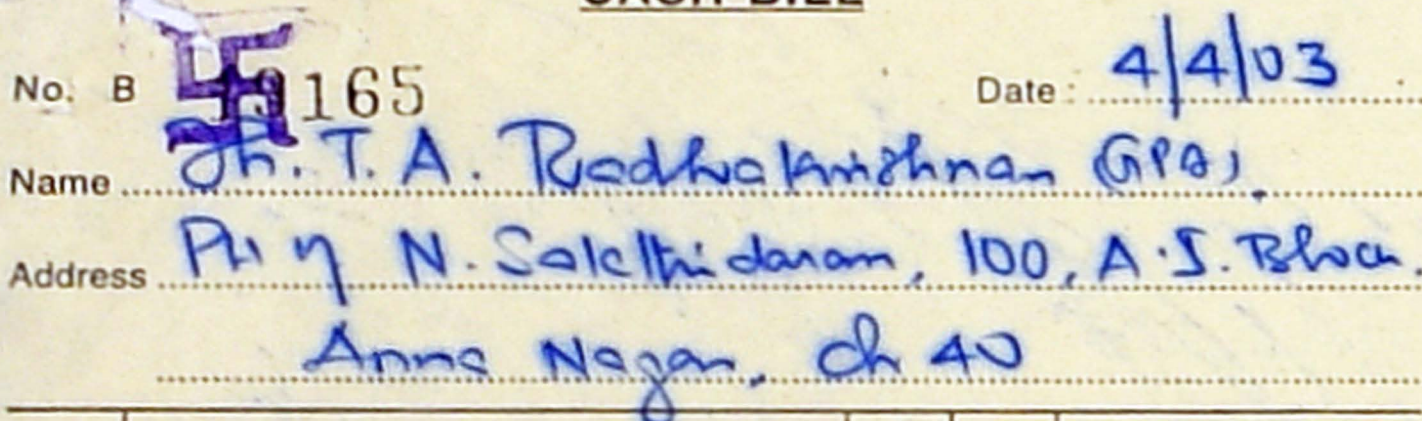 CASH BILL
No. B 165
Date : 4/4/03
Name Th. T. A. Radhakrishnan (GPA).
Address N. Sakthidaram, 100, A.J. Block,
Anna Nagar, Ch 40